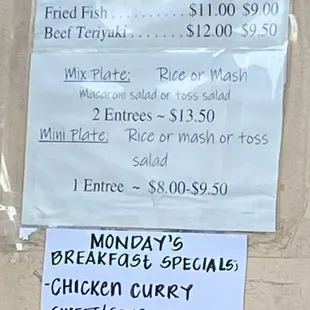 Fried Fish . . . . . . . . . . $11.00 $9.00
Beef Teriyaki . . . . . . . $12.00 $9.50
Mix Plate: Rice or Mash
Macaroni salad or toss salad
2 Entrees ~ $13.50
Mini Plate: Rice or mash or toss
salad
1 Entree ~ $8.00-$9.50
MONDAY'S
BREAKFAST SPECIALS;
-CHICKEN CURRY